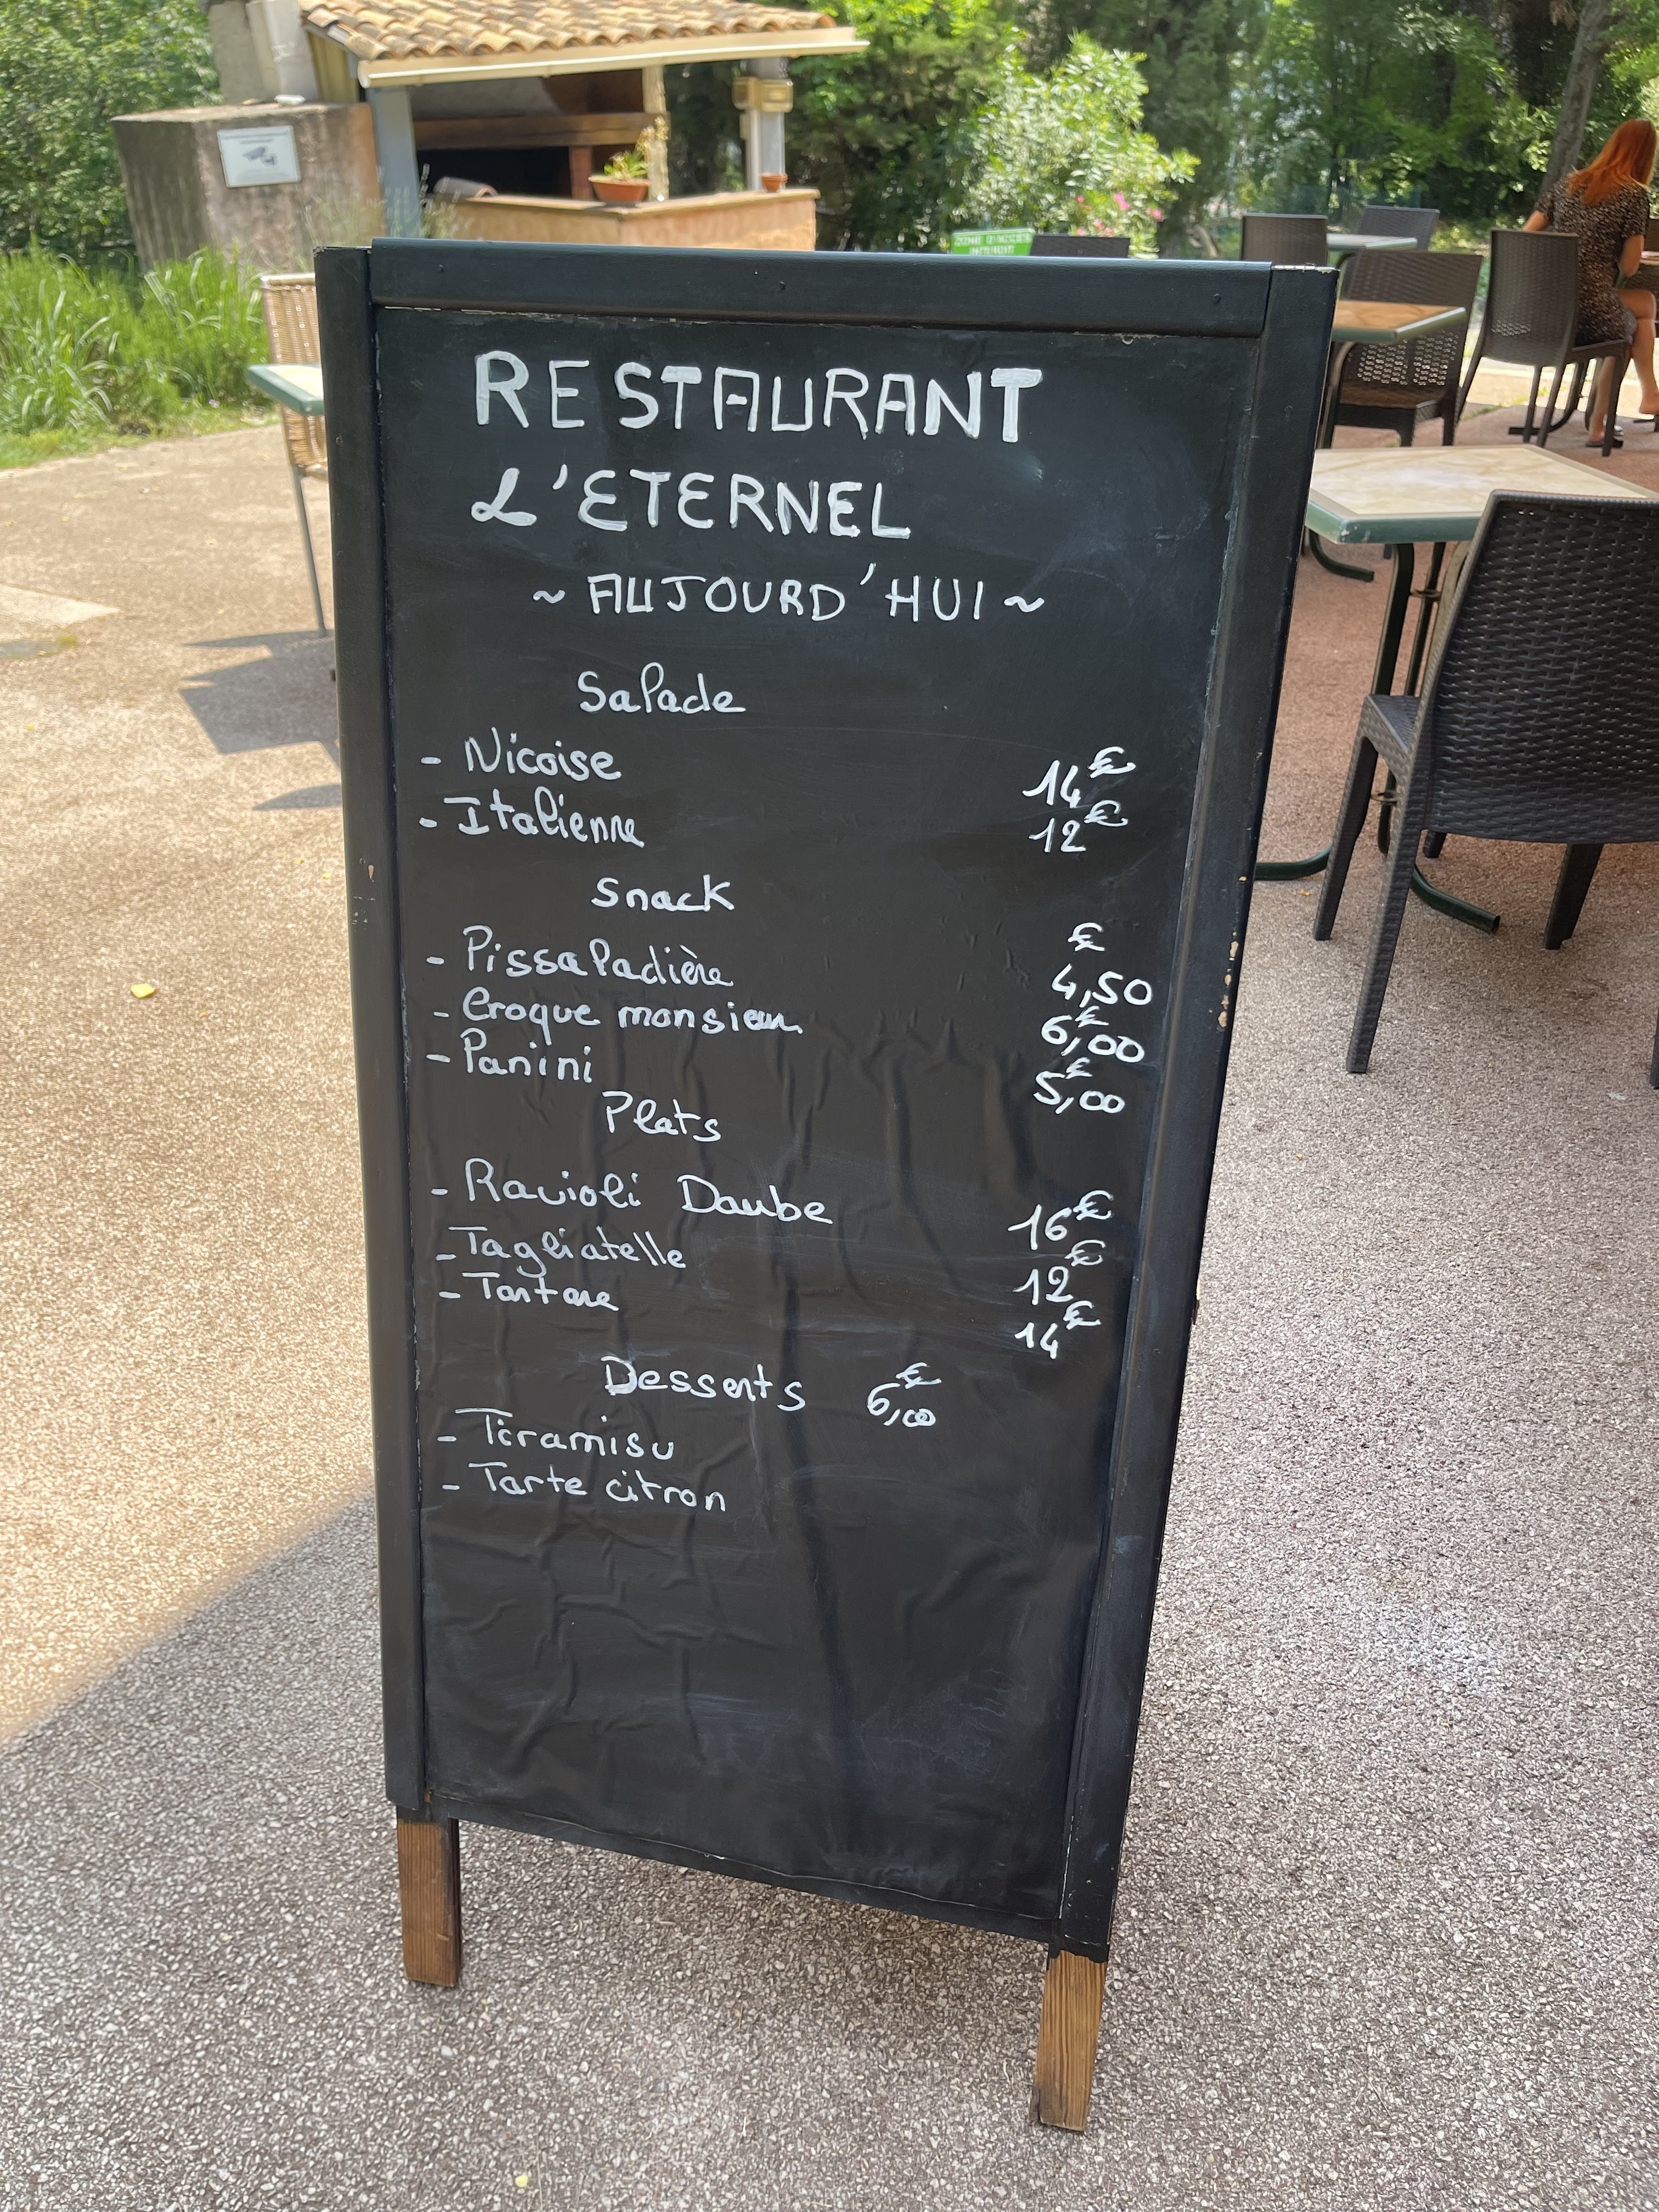 RESTAURANT
L'ETERNEL
~ AUJOURD'HUI ~
Salade
- Nicoise 14€
- Italienne 12€
Snack
- Pissaladière 4,50€
- Croque monsieur 6,00€
- Panini 5,00€
Plats
- Ravioli Daube 16€
- Tagliatelle 12€
- Tartare 14€
Desserts 6,00€
- Tiramisu
- Tarte citron